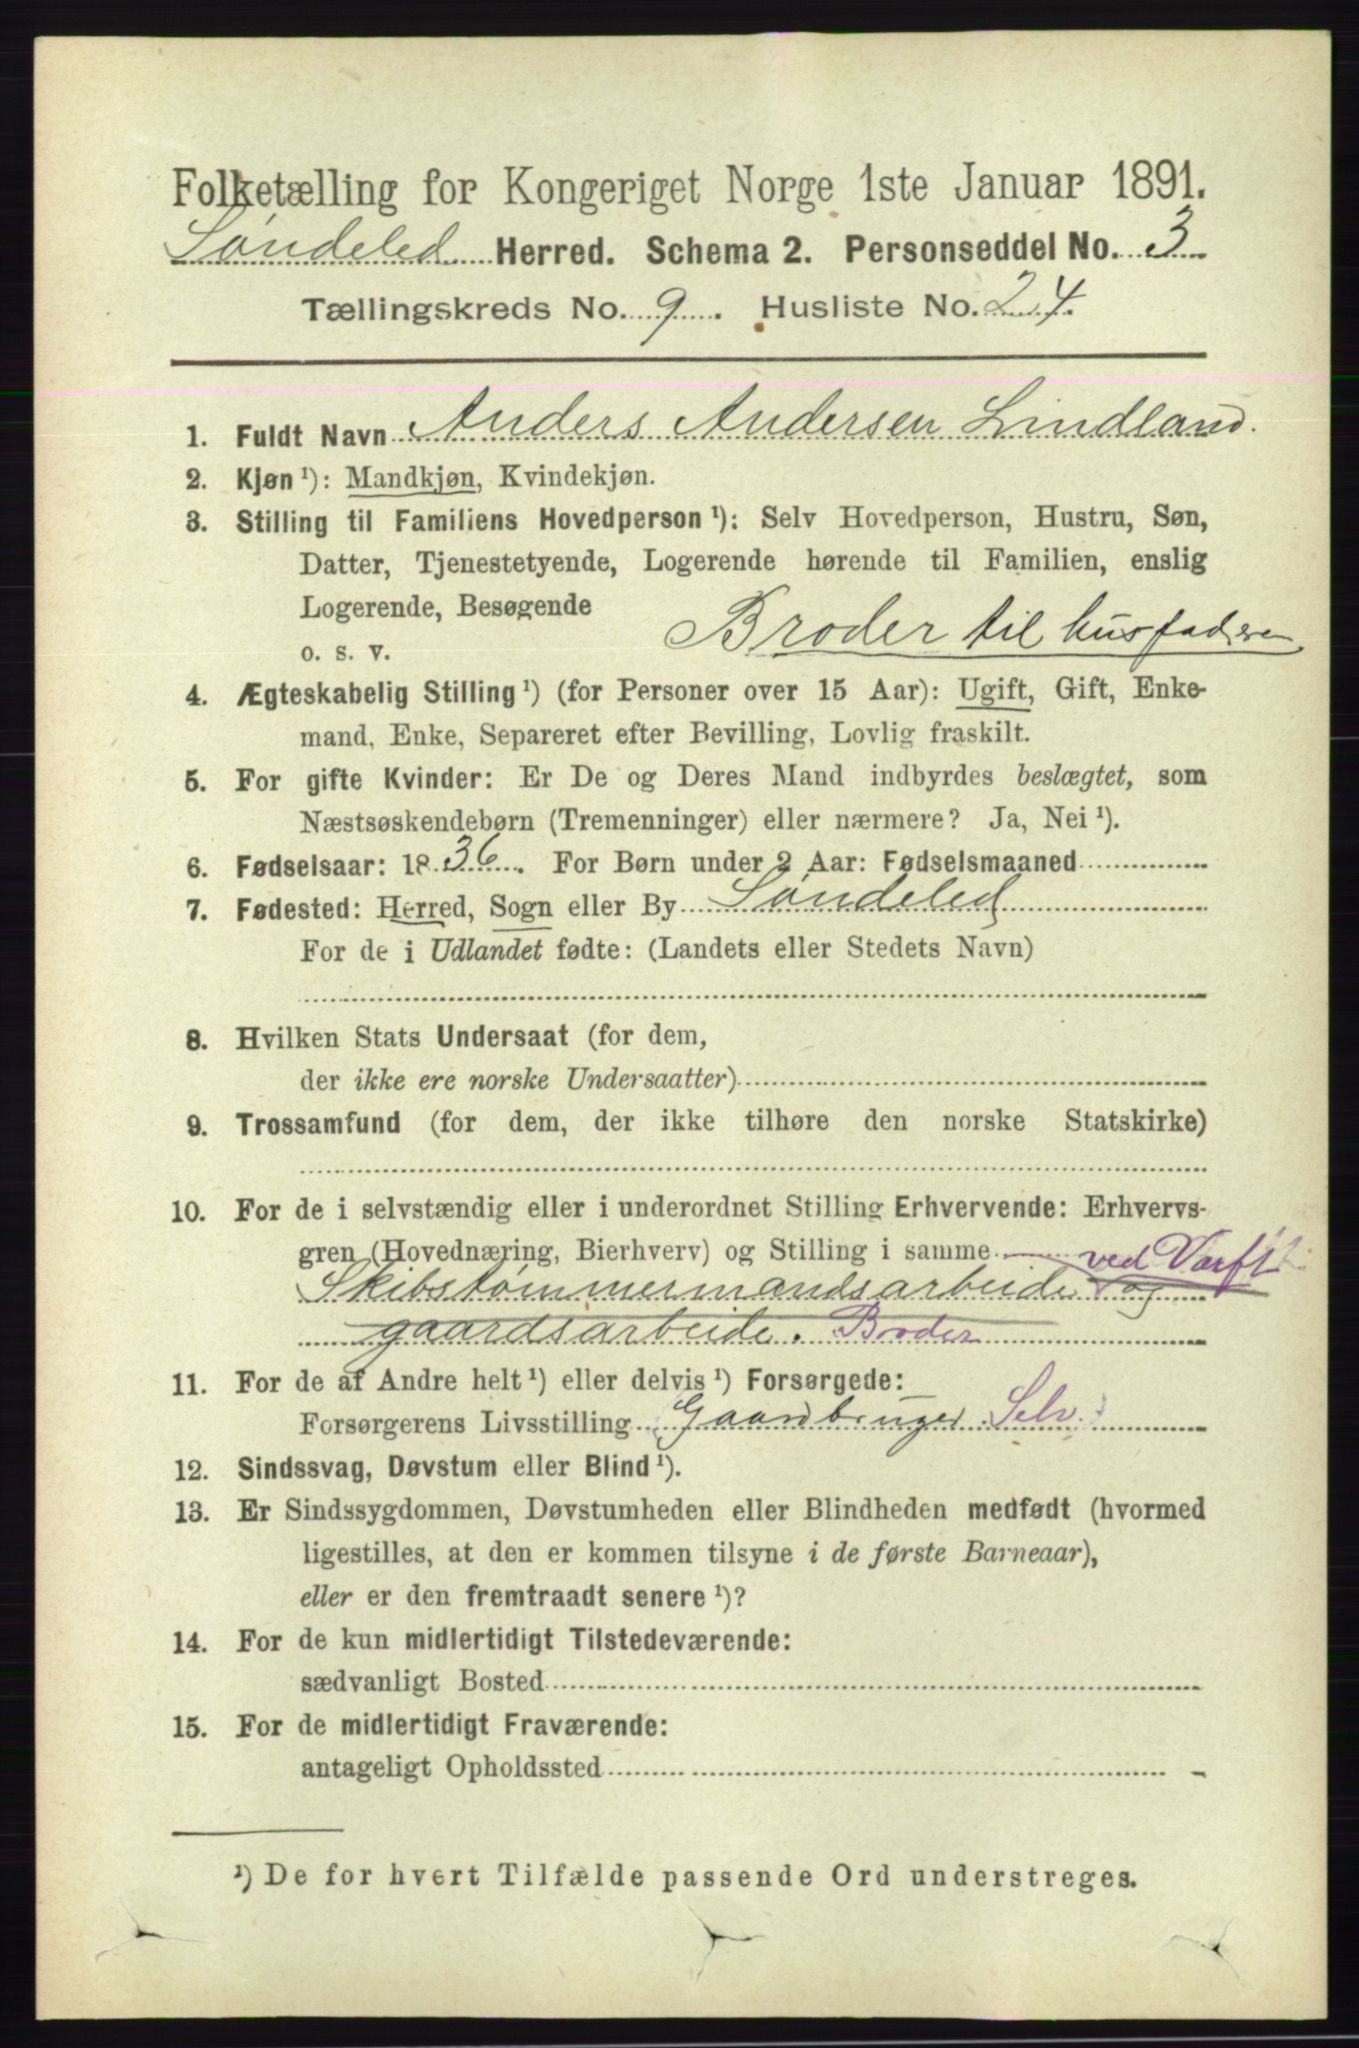 Folketælling for Kongeriget Norge 1ste Januar 1891.
Søndeled Herred. Schema 2. Personseddel No. 3
Tællingskreds No. 9. Husliste No. 24.
1. Fuldt Navn Anders Andersen Lindland.
2. Kjøn ¹): Mandkjøn, Kvindekjøn.
3. Stilling til Familiens Hovedperson ¹): Selv Hovedperson, Hustru, Søn,
Datter, Tjenestetyende, Logerende hørende til Familien, enslig
Logerende, Besøgende
o. s. v. Broder til husfaderen
4. Ægteskabelig Stilling ¹) (for Personer over 15 Aar): Ugift, Gift, Enke-
mand, Enke, Separeret efter Bevilling, Lovlig fraskilt.
5. For gifte Kvinder: Er De og Deres Mand indbyrdes beslægtet, som
Næstsøskendebørn (Tremenninger) eller nærmere? Ja, Nei ¹).
6. Fødselsaar: 1836. For Børn under 2 Aar: Fødselsmaaned
7. Fødested: Herred, Sogn eller By Søndeled
For de i Udlandet fødte: (Landets eller Stedets Navn)
8. Hvilken Stats Undersaat (for dem,
der ikke ere norske Undersaatter)
9. Trossamfund (for dem, der ikke tilhøre den norske Statskirke)
10. For de i selvstændig eller i underordnet Stilling Erhvervende: Erhvervs-
gren (Hovednæring, Bierhverv) og Stilling i samme ved Varft
Skibstømmermandsarbeide og
gaardsarbeide. Broder
11. For de af Andre helt ¹) eller delvis ¹) Forsørgede:
Forsørgerens Livsstilling (Gaardbruger Selv.)
12. Sindssvag, Døvstum eller Blind ¹).
13. Er Sindssygdommen, Døvstumheden eller Blindheden medfødt (hvormed
ligestilles, at den er kommen tilsyne i de første Barneaar),
eller er den fremtraadt senere ¹)?
14. For de kun midlertidigt Tilstedeværende:
sædvanligt Bosted
15. For de midlertidigt Fraværende:
antageligt Opholdssted
¹) De for hvert Tilfælde passende Ord understreges.